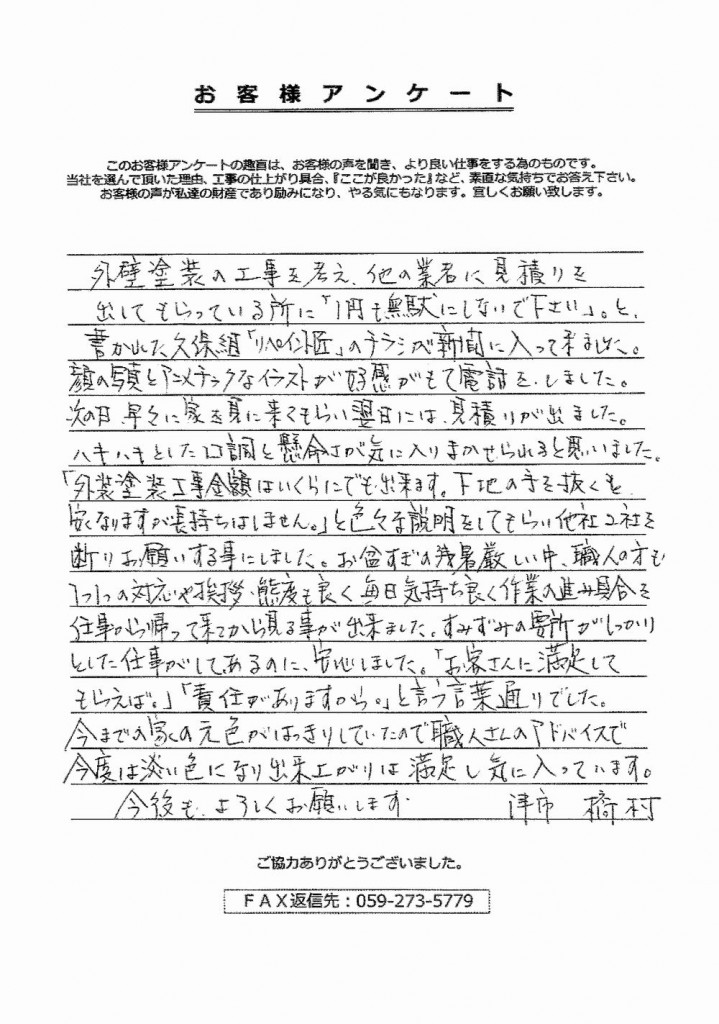 お客様アンケート
このお客様アンケートの趣旨は、お客様の声を聞き、より良い仕事をする為のものです。
当社を選んで頂いた理由、工事の仕上がり具合、『ここが良かった』など、素直な気持ちでお答え下さい。
お客様の声が私達の財産であり励みになり、やる気にもなります。宜しくお願い致します。
外壁塗装の工事を考え、他の業者に見積りを
出してもらっている所に「1円も無駄にしないで下さい」。と、
書かれた久保組「リペイント匠」のチラシが新聞に入って来ました。
顔の写真とアニメチックなイラストが好感がもて電話を、しました。
次の日、早々に家を見に来てもらい翌日には、見積りが出ました。
ハキハキとした口調と懸命さが気に入りまかせられると思いました。
「外装塗装工事金額はいくらにでも出来ます。下地の手を抜くも
安くなりますが長持ちはしません。」と色々な説明をしてもらい他社2社を
断りお願いする事にしました。お盆すぎの残暑厳しい中、職人の方も
1つ1つの対応や挨拶・態度も良く毎日気持ち良く作業の進み具合を
仕事から帰って来てから見る事が出来ました。すみずみの要所がしっかり
とした仕事がしてあるのに、安心しました。「お客さんに満足して
もらえば。」「責任がありますから。」と言う言葉通りでした。
今までの家の元色がはっきりしていたので職人さんのアドバイスで
今度は淡い色になり出来上がりは満足し気に入っています。
今後も、よろしくお願いします. 津市 橋村
ご協力ありがとうございました。
FAX返信先：059-273-5779